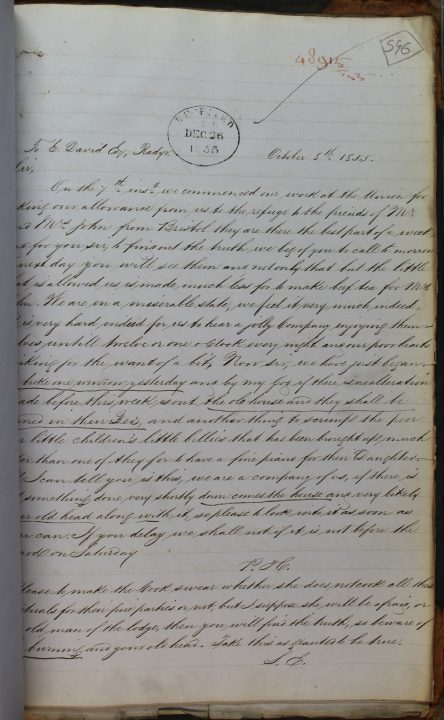 596
48915/55
REGISTERED
DEC. 26
1855
To E. David Esq, Radyr
October 8th 1855.
Sir,
On the 7th inst we commenced our work at the Union for
king our allowance from us to the refuge & the friends of Mr
& Mrs John from Bristol they are there the best part of a week
for you sir, to find out the truth, we beg of you to call to morrow
next day you will see them and not only that but the little
is allowed us is made much less for to make beef tea for Mrs
hn. We are in a miserable state, we feel it very much indeed,
is very hard indeed for us to hear a jolly company enjoying them
lves untill twelve or one o Clock every night and our poor hearts
king for the want of a bit, Now Sir, we have just began
broke one window yesterday and by my God if there is no alteration
ade before this week is out the old house and they shall be
ned in their , and another thing to scrumpt the poor
little children's little bellies that has been brought up much
er than one of they for to have a fine piano for their Daughter
I can tell you is this, we are a company of us, if there is
something done very shortly down comes the house and very likely
er old head along with it, so please to look into it as soon as
u can. If you delay we shall not if it is not before the
on Saturday
P. H.
lease to make the Cook swear whether she does not cook all these
ctuals for their fine parties or not, but I suppose she will be afraid, or
old man of the lodge, then you will find the truth, so beware of
burning and your old head. Take this as granted to be true.
S. C.